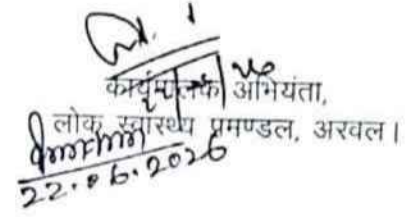 कार्यपालक अभियंता,
लोक स्वास्थ्य प्रमण्डल, अरवल।
22.06.2026